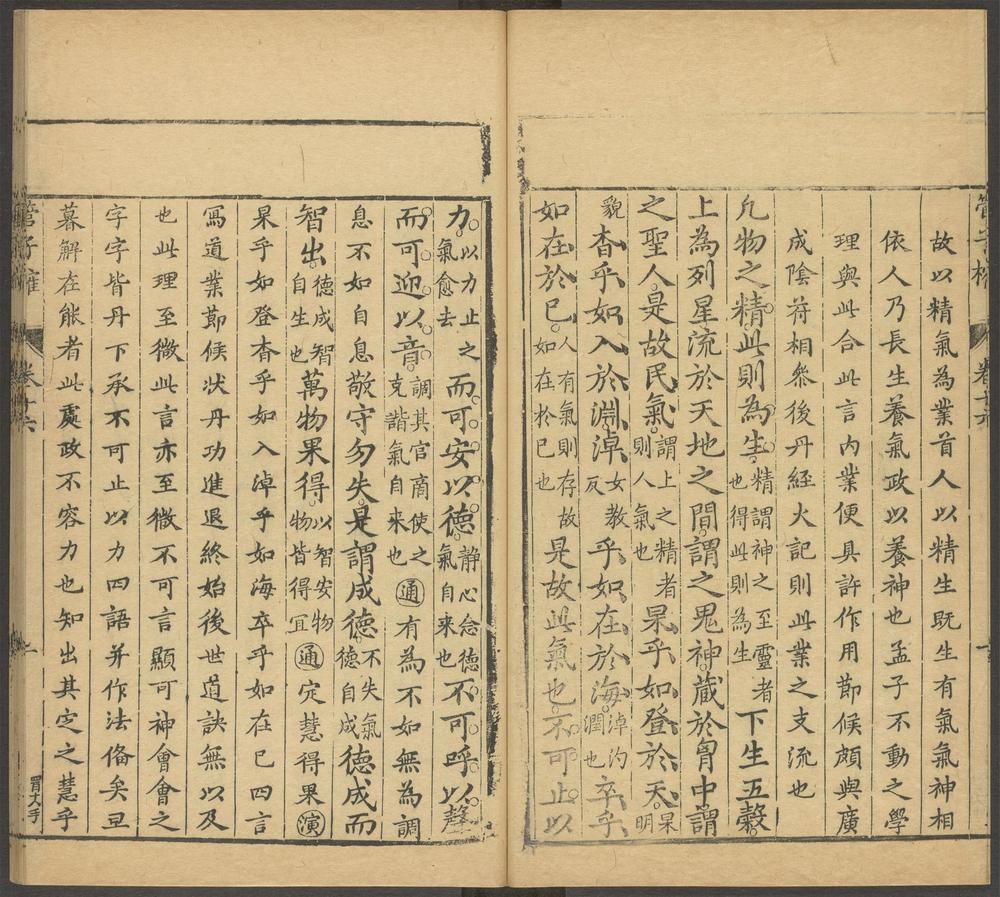 管子榷 卷十六
故以精氣為業首人以精生既生有氣氣神相
依人乃長生養氣政以養神也孟子不動之學
理與此合此言內業便具許作用節候頗與廣
成陰符相參後丹經火記則此業之支流也
凡物之精此則為生精謂神之至靈者也得此則為生下生五穀
上為列星流於天地之間謂之鬼神藏於胷中謂
之聖人是故民氣謂上之精者則人氣也杲乎如登於天杲明
貌杳乎如入於淵淖女教反乎如在於海淖汋潤也卒乎
如在於已人有氣則存故如在於已也是故此氣也不可止以
力以力止之氣愈去而可安以德靜心念德氣自来也不可呼以聲
而可迎以音調其宮商使之克諧氣自来也通有為不如無為調
息不如自息敬守勿失是謂成德不失氣德自成德成而
智出德成智自生也萬物果得以智安物物皆得宜通定慧得果演
杲乎如登杳乎如入淖乎如海卒乎如在已四言
寫道業節候状丹功進退終始後世道訣無以及
也此理至微此言亦至微不可言顯可神會會之
字字皆丹下承不可止以力四語并作法俻矣
暮解在能者此處政不容力也知出其定之慧乎
管子榷 卷十六